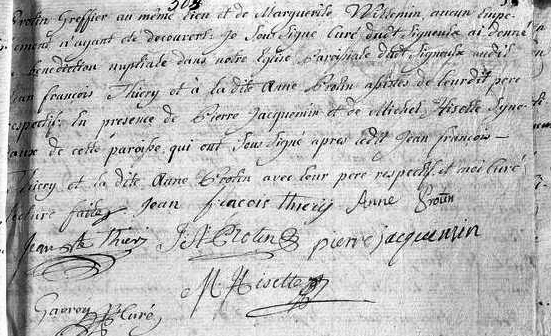 Protin Greffier au même lieu et de Marguerite Willemin aucun Empe-
chement n'ayant de decouvert Je Soussigné Curé dudt Signeulx ai donné
la benediction nuptiale dans notre Eglise Paroissiale dudt Signeulx audit
Jean francois Thiery et à la dite Anne Protin assistés de leurdit pere
respectif. En presence de Pierre Jacquemin et de Michel Hisette Syno-
daux de cette paroisse qui ont Sous Signé apres ledit Jean francois —
Thiery et la dite Anne Protin avec leur pere respectif et moi Curé
lecture faite Jean fracois thiery Anne Protin
Jean Thiery J Protin pierre Jacquemin
M. Hisette
Curé